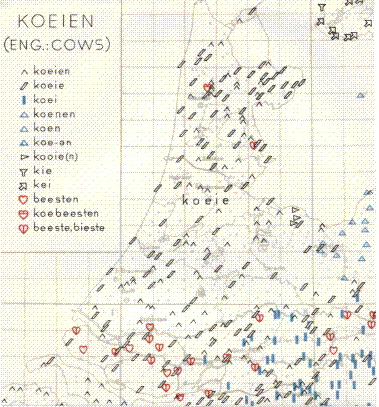 KOEIEN
(ENG.:COWS)
koeien
koeie
koei
koenen
koen
koe-ən
kooie(n)
kie
kei
beesten
koebeesten
beeste,bieste
koeie